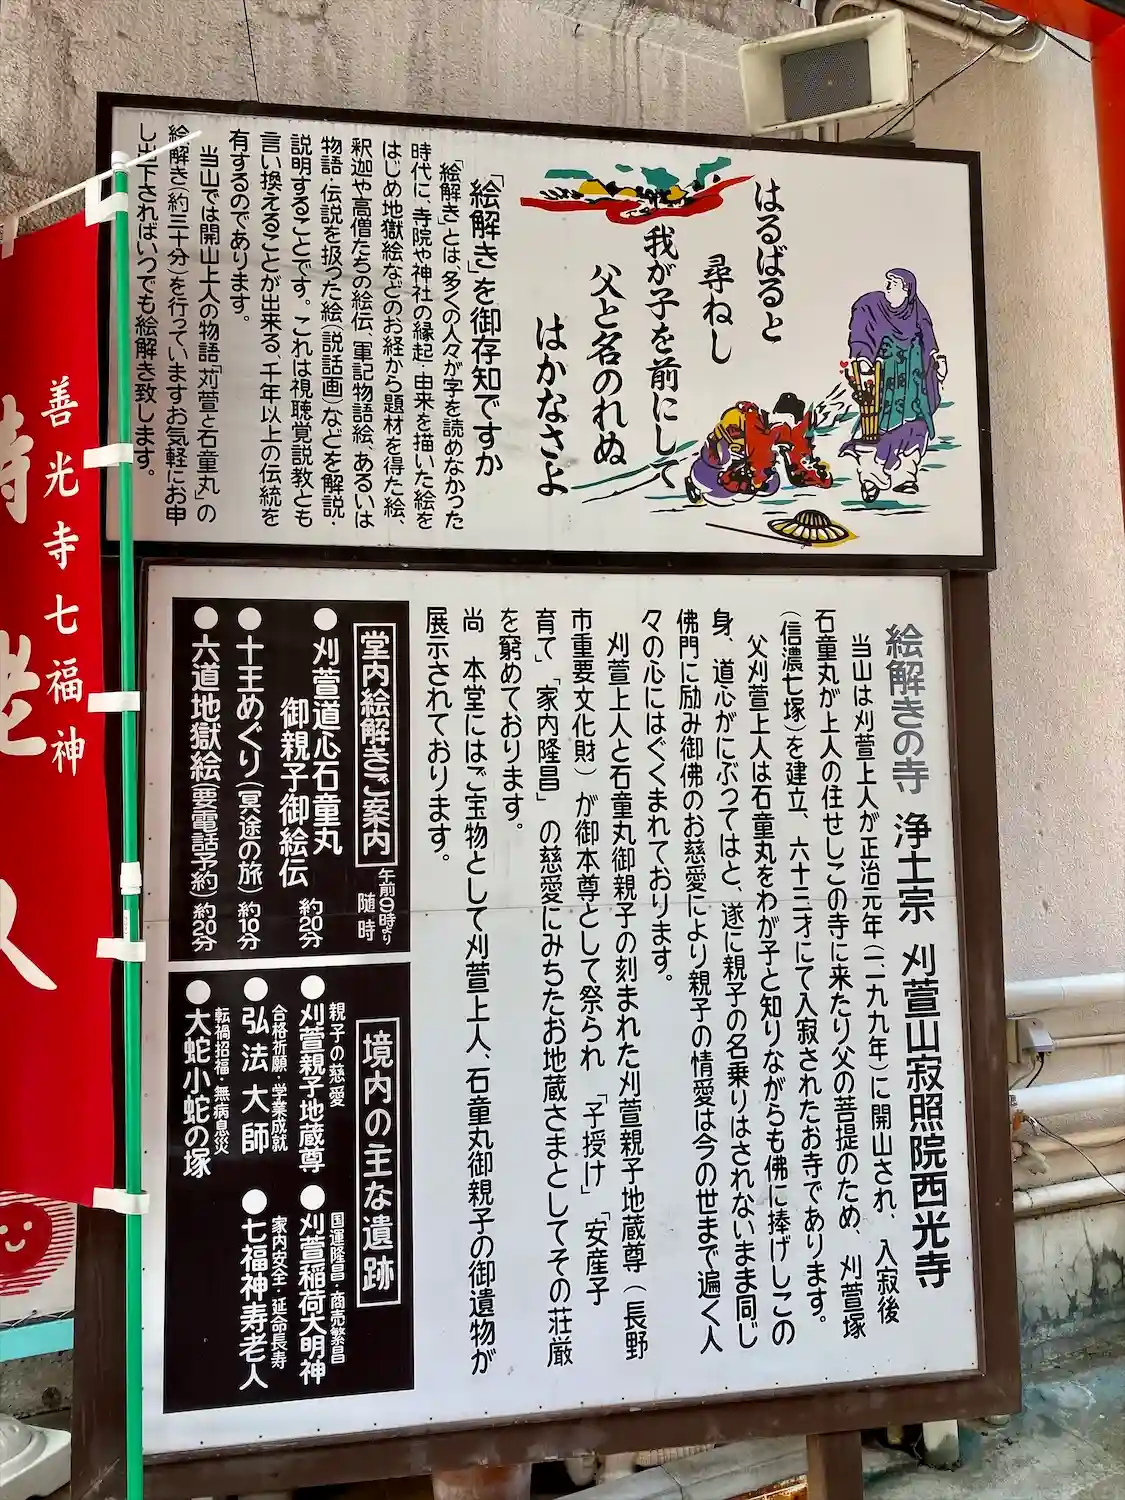 はるばると
尋ねし
我が子を前にして
父と名のれぬ
はかなさよ
「絵解き」を御存知ですか
「絵解き」とは、多くの人々が字を読めなかった
時代に、寺院や神社の縁起・由来を描いた絵を
はじめ地獄絵などのお経から題材を得た絵、
釈迦や高僧たちの絵伝、軍記物語絵、あるいは
物語・伝説を扱った絵(説話画)などを解説・
説明することです。これは視聴覚説教とも
言い換えることが出来る、千年以上の伝統を
有するのであります。
当山では開山上人の物語「刈萱と石童丸」の
絵解き(約三十分)を行っていますお気軽にお申
し出下さればいつでも絵解き致します。
絵解きの寺 浄土宗 刈萱山寂照院西光寺
当山は刈萱上人が正治元年(一一九九年)に開山され、入寂後
石童丸が上人の住せしこの寺に来たり父の菩提のため、刈萱塚
(信濃七塚)を建立、六十三才にて入寂されたお寺であります。
父刈萱上人は石童丸をわが子と知りながらも佛に捧げしこの
身、道心がにぶってはと、遂に親子の名乗りはされないまま同じ
佛門に励み御佛のお慈愛により親子の情愛は今の世まで遍く人
々の心にはぐくまれております。
刈萱上人と石童丸御親子の刻まれた刈萱親子地蔵尊(長野
市重要文化財)が御本尊として祭られ「子授け」「安産子
育て」「家内隆昌」の慈愛にみちたお地蔵さまとしてその荘厳
を窮めております。
尚 本堂にはご宝物として刈萱上人、石童丸御親子の御遺物が
展示されております。
堂内絵解きご案内 午前9時より
随時
●刈萱道心石童丸
御親子御絵伝 約20分
●十王めぐり(冥途の旅) 約10分
●六道地獄絵(要電話予約) 約20分
境内の主な遺跡
親子の慈愛
●刈萱親子地蔵尊
国運隆昌・商売繁昌
●刈萱稲荷大明神
合格祈願・学業成就
●弘法大師
家内安全・延命長寿
●七福神寿老人
転禍招福・無病息災
●大蛇小蛇の塚
善光寺七福神